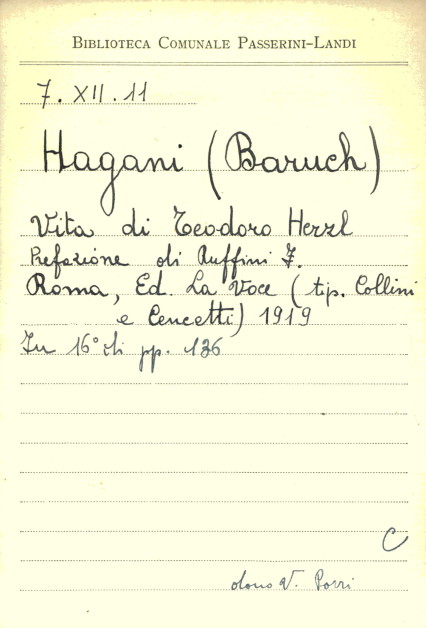 BIBLIOTECA COMUNALE PASSERINI-LANDI
7. XII. 11
Hagani (Baruch)
Vita di Teodoro Herzl
Prefazione di Ruffini F.
Roma, Ed. La Voce (tip. Collini
e Cencetti) 1919
In 16° di pp. 136
C
dono V. Porri